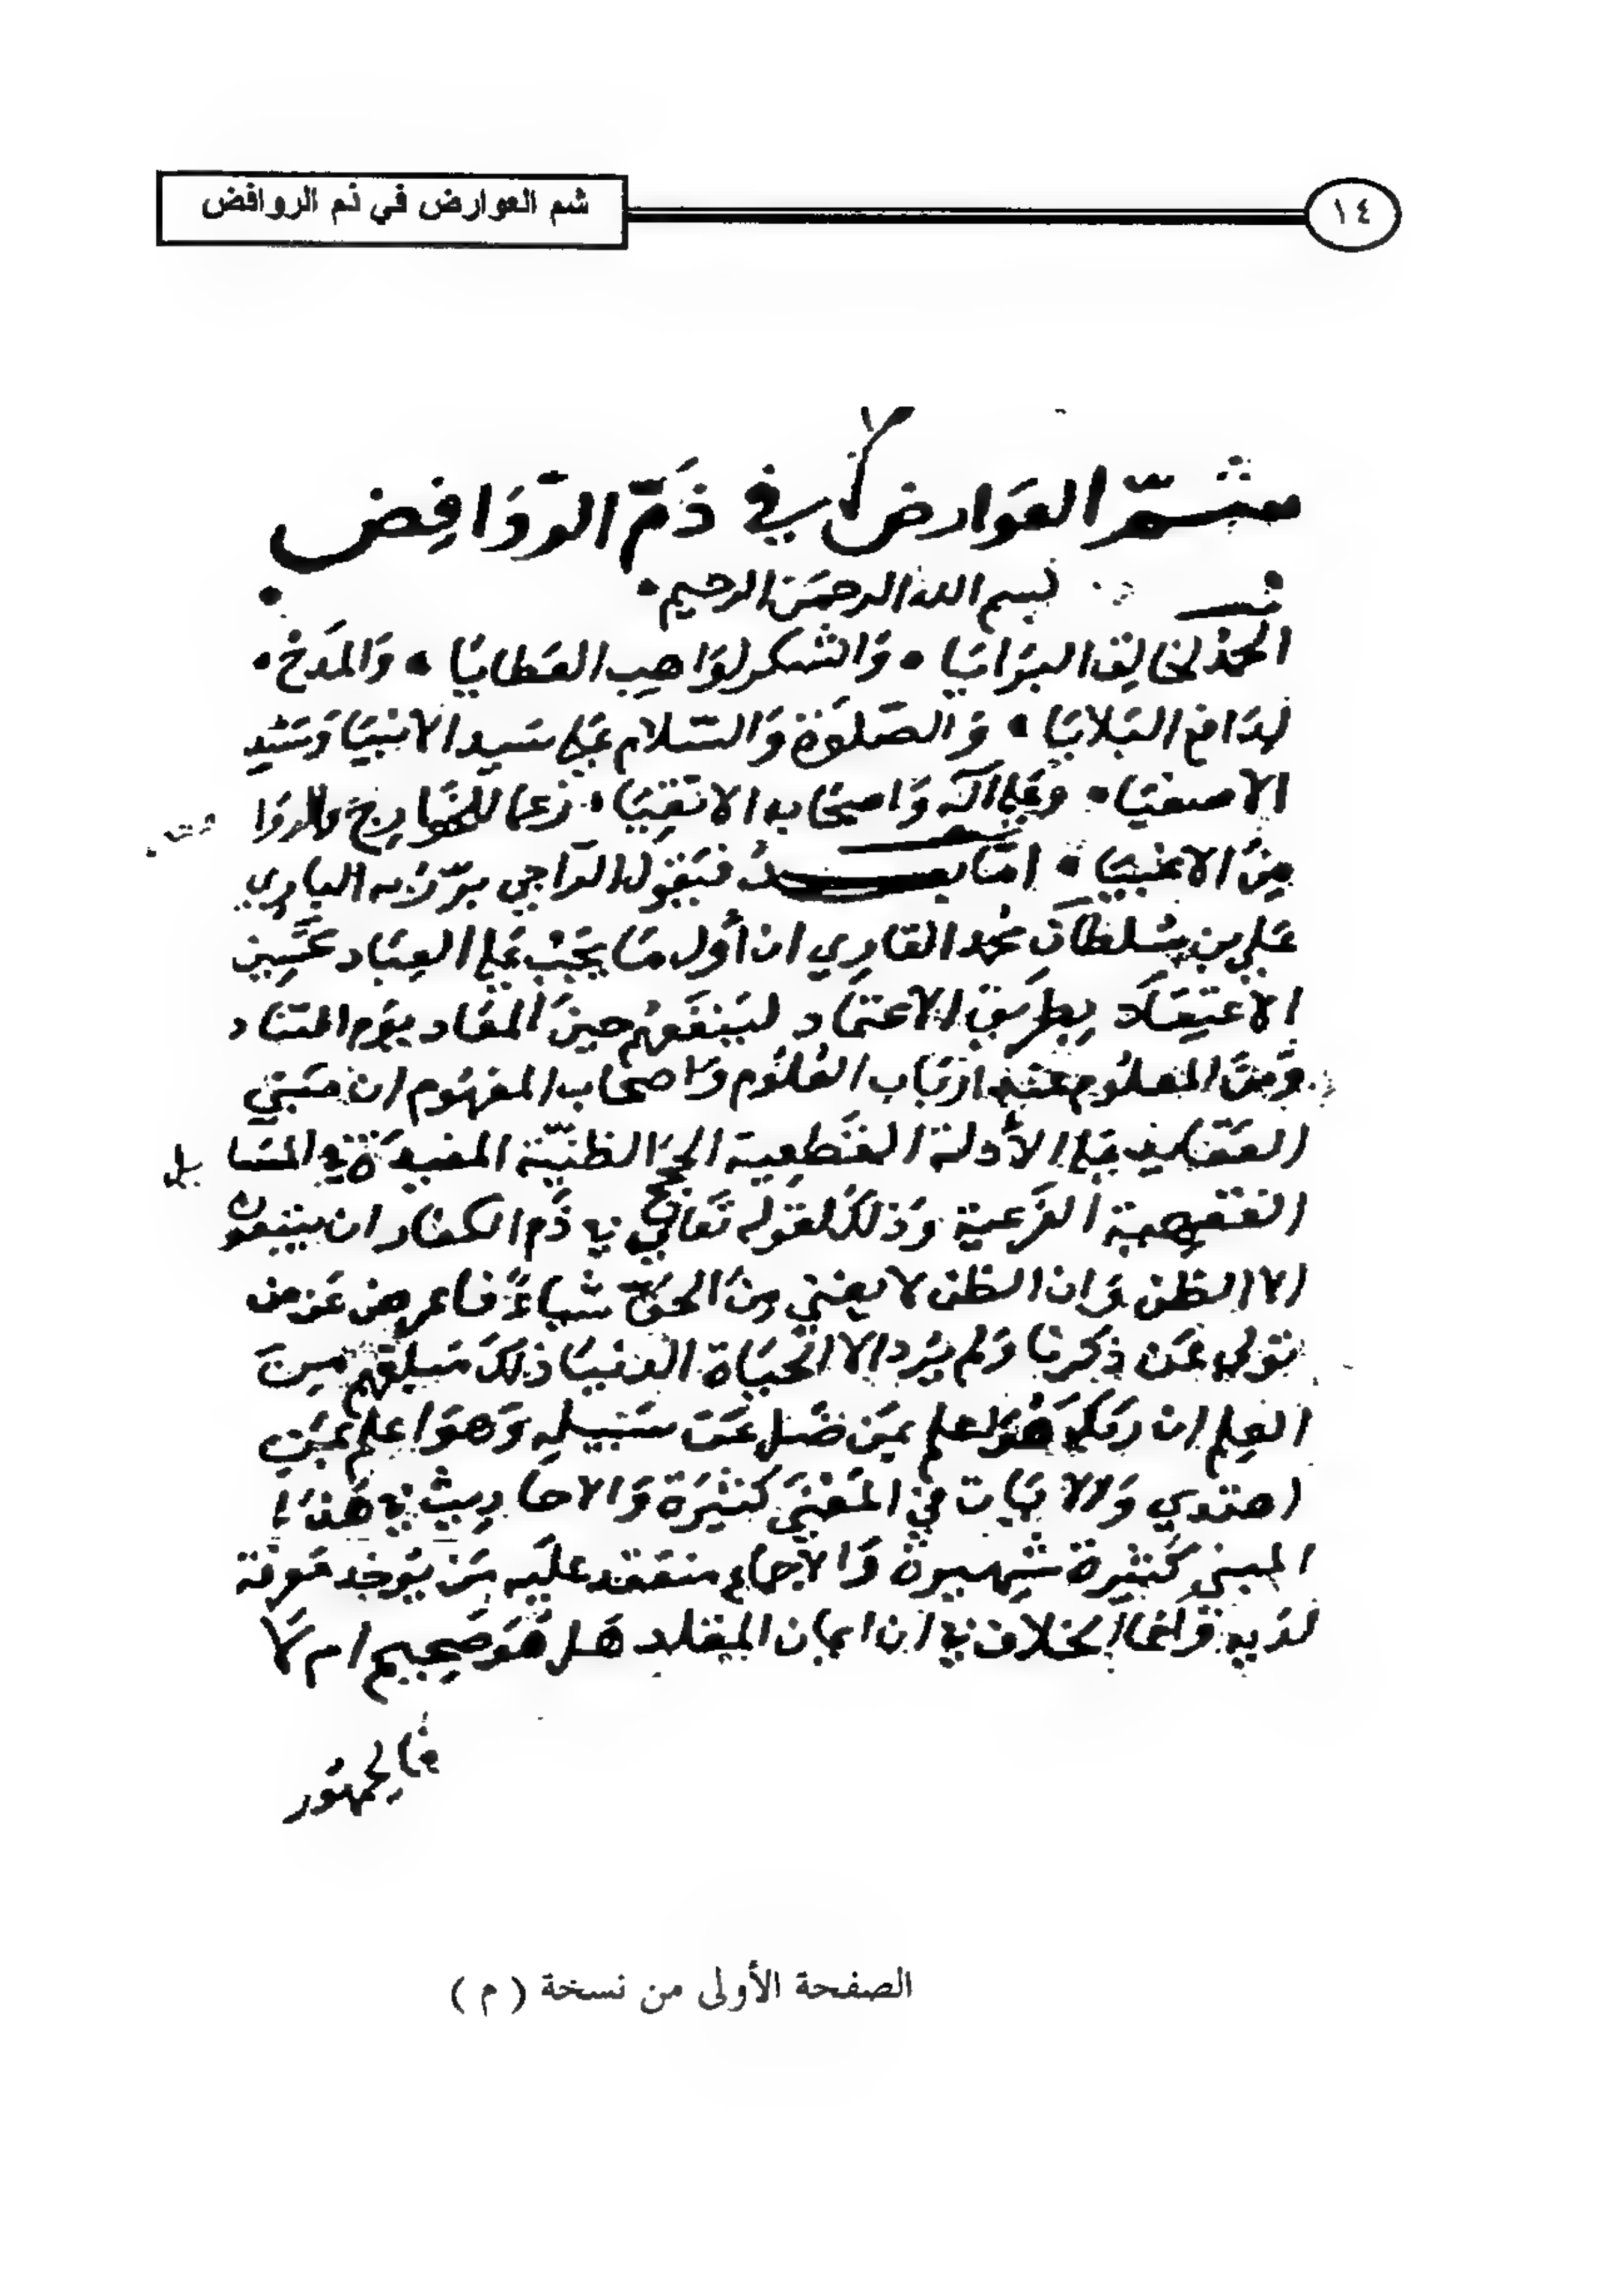 ١٤
شم العوارض في ذم الروافض
شمّ العَوارض في ذَمّ الرّوَافِض
بسم الله الرحمَن الرحيم
الحمدُ لخالِق البرَايَا • وَالشكر لوَاهِب العَطايَا • وَالمَدحُ •
لدَافع البَلايَا • وَالصَّلوَة وَالسَّلام عَلى سَيد الانبيَا وَسَند
الاصفيَا • وعَلى آله وَاصحَابه الاتقِيَا • رغما للخوارِج والروَا فض
مِنَ الاغبيَا • امّا بعــد فيَقولُ الرَاجي برّ رَبه الباري
عَلي بن سُلطان محمد القاري ان أول مَا يجبُ عَلى العِبَاد تحسِين
الاعتِقَاد بِطريق الاعتماد لينفَعَهُم حينَ المعَاد يوم التناد
وَمنَ المعلُوم عندَ ارْبَاب العُلوُم وَاصحَاب المفهُوم ان مَبنى
العَقايد عَلى الأدلة القَطعِية لا الظنّيّة المفيدَة في المسَا يل
الفقهية الفَرعية وَذلكَ لقوَله تعَالى في ذَم الكفار ان يتبعون
الا الظن وَان الظن لا يغني مِنَ الحقّ شيأ فاعرض عَن من
تولى عَن ذكرنا وَلم يُرد الا الحيَاة الدنيَا ذلكَ مَبلغهم مِنَ
العِلم ان ربك هُوَ اعلم بمَن ضَل عَن سَبيلهِ وَهوَ اعلم بمَنِ
اهتدي وَالايَات في المعْنىَ كثيرَة وَالاحَاديث في هَذا
المبنى كَثيرة شهيرة وَالاجماع منعقد عليَه
لدَيه وَانما الخلاف في ان ايمان المقلد هَل هُوَ صَحيح ام لا
فالجمهور
الصفحة الأولى من نسخة ( م )